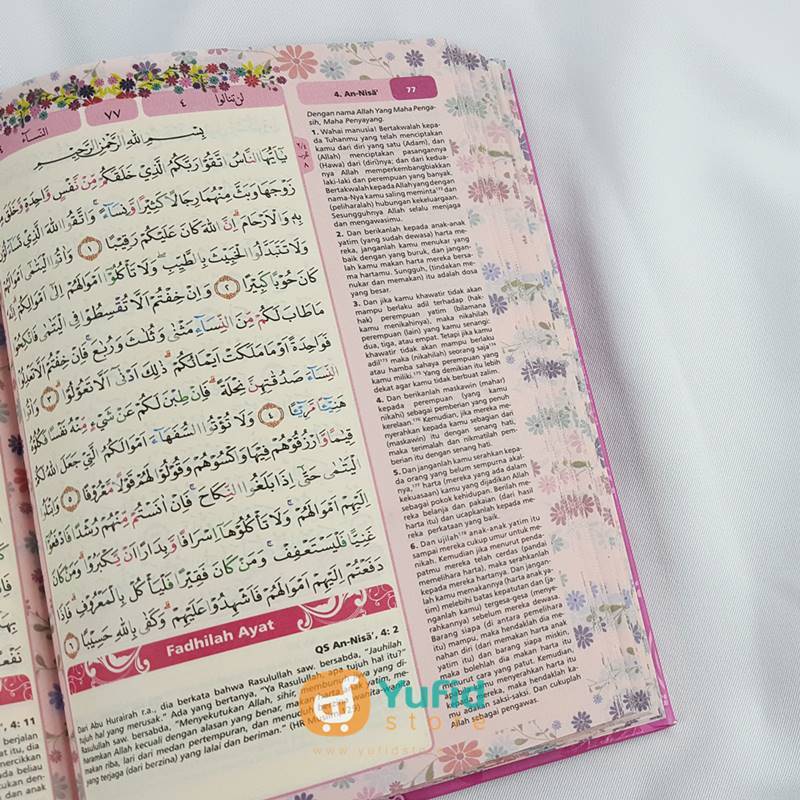 4. An-Nisā' 77
لن تنالوا ٤
٧٧
النساۤء
بِسْمِ اللّٰهِ الرَّحْمٰنِ الرَّحِيْمِ
يٰٓاَيُّهَا النَّاسُ اتَّقُوْا رَبَّكُمُ الَّذِيْ خَلَقَكُمْ مِّنْ نَّفْسٍ وَّاحِدَةٍ وَّخَلَقَ
زَوْجَهَا وَبَثَّ مِنْهُمَا رِجَالًا كَثِيْرًا وَّنِسَاۤءً ۚ وَاتَّقُوا اللّٰهَ الَّذِيْ تَسَاۤءَلُوْنَ
بِهٖ وَالْاَرْحَامَ ۗ اِنَّ اللّٰهَ كَانَ عَلَيْكُمْ رَقِيْبًا ١ وَاٰتُوا الْيَتٰمٰٓى اَمْوَالَهُمْ
وَلَا تَتَبَدَّلُوا الْخَبِيْثَ بِالطَّيِّبِ ۖ وَلَا تَأْكُلُوْٓا اَمْوَالَهُمْ اِلٰٓى اَمْوَالِكُمْ ۗ اِنَّهٗ
كَانَ حُوْبًا كَبِيْرًا ٢ وَاِنْ خِفْتُمْ اَلَّا تُقْسِطُوْا فِى الْيَتٰمٰى فَانْكِحُوْا
مَا طَابَ لَكُمْ مِّنَ النِّسَاۤءِ مَثْنٰى وَثُلٰثَ وَرُبٰعَ ۚ فَاِنْ خِفْتُمْ اَلَّا تَعْدِلُوْا
فَوَاحِدَةً اَوْ مَا مَلَكَتْ اَيْمَانُكُمْ ۗ ذٰلِكَ اَدْنٰٓى اَلَّا تَعُوْلُوْا ٣ وَاٰتُوا
النِّسَاۤءَ صَدُقٰتِهِنَّ نِحْلَةً ۗ فَاِنْ طِبْنَ لَكُمْ عَنْ شَيْءٍ مِّنْهُ نَفْسًا فَكُلُوْهُ
هَنِيْۤـًٔا مَّرِيْۤـًٔا ٤ وَلَا تُؤْتُوا السُّفَهَاۤءَ اَمْوَالَكُمُ الَّتِيْ جَعَلَ اللّٰهُ لَكُمْ
قِيٰمًا وَّارْزُقُوْهُمْ فِيْهَا وَاكْسُوْهُمْ وَقُوْلُوْا لَهُمْ قَوْلًا مَّعْرُوْفًا ٥ وَابْتَلُوا
الْيَتٰمٰى حَتّٰىٓ اِذَا بَلَغُوا النِّكَاحَ ۚ فَاِنْ اٰنَسْتُمْ مِّنْهُمْ رُشْدًا فَادْفَعُوْٓا
اِلَيْهِمْ اَمْوَالَهُمْ ۚ وَلَا تَأْكُلُوْهَآ اِسْرَافًا وَّبِدَارًا اَنْ يَّكْبَرُوْا ۗ وَمَنْ كَانَ
غَنِيًّا فَلْيَسْتَعْفِفْ ۚ وَمَنْ كَانَ فَقِيْرًا فَلْيَأْكُلْ بِالْمَعْرُوْفِ ۗ فَاِذَا
دَفَعْتُمْ اِلَيْهِمْ اَمْوَالَهُمْ فَاَشْهِدُوْا عَلَيْهِمْ ۗ وَكَفٰى بِاللّٰهِ حَسِيْبًا ٦
Fadhilah Ayat
QS An-Nisā', 4: 2
Dari Abu Hurairah r.a., dia berkata bahwa Rasulullah saw. bersabda, "Jauhilah
tujuh hal yang merusak." Ada yang bertanya, "Ya Rasulullah, apa tujuh hal itu?"
Rasulullah saw. bersabda, "Menyekutukan Allah, sihir, membunuh jiwa yang di-
haramkan Allah kecuali dengan alasan yang benar, makan harta anak yatim, me-
makan riba, lari dari medan pertempuran, dan menuduh berzina wanita
yang terjaga (dari berzina) yang lalai dan beriman." (HR
Dengan nama Allah Yang Maha Penga-
sih, Maha Penyayang.
1. Wahai manusia! Bertakwalah kepa-
da Tuhanmu yang telah menciptakan
kamu dari diri yang satu (Adam), dan
(Allah) menciptakan pasangannya
(Hawa) dari (diri)nya; dan dari kedua-
nya Allah memperkembangbiakkan
laki-laki dan perempuan yang banyak.
Bertakwalah kepada Allah yang dengan
nama-Nya kamu saling meminta¹⁷³ dan
(peliharalah) hubungan kekeluargaan.
Sesungguhnya Allah selalu menjaga
dan mengawasimu.
2. Dan berikanlah kepada anak-anak
yatim (yang sudah dewasa) harta me-
reka, janganlah kamu menukar yang
baik dengan yang buruk, dan jangan-
lah kamu makan harta mereka bersa-
ma hartamu. Sungguh, (tindakan me-
nukar dan memakan) itu adalah dosa
yang besar.
3. Dan jika kamu khawatir tidak akan
mampu berlaku adil terhadap (hak-
hak) perempuan yatim (bilamana
kamu menikahinya), maka nikahilah
perempuan (lain) yang kamu senangi:
dua, tiga, atau empat. Tetapi jika kamu
khawatir tidak akan mampu berlaku
adil¹⁷⁴ maka (nikahilah) seorang saja¹⁷⁵
atau hamba sahaya perempuan yang
kamu miliki. Yang demikian itu lebih
dekat agar kamu tidak berbuat zalim.
4. Dan berikanlah maskawin (mahar)
kepada perempuan (yang kamu
nikahi) sebagai pemberian yang penuh
kerelaan. Kemudian, jika mereka me-
nyerahkan kepada kamu sebagian dari
(maskawin) itu dengan senang hati,
maka terimalah dan nikmatilah pem-
berian itu dengan senang hati.
5. Dan janganlah kamu serahkan kepa-
da orang yang belum sempurna akal-
nya, harta (mereka yang ada dalam
kekuasaan) kamu yang dijadikan Allah
sebagai pokok kehidupan. Berilah me-
reka belanja dan pakaian (dari hasil
harta itu) dan ucapkanlah kepada me-
reka perkataan yang baik.
6. Dan ujilah anak-anak yatim itu
sampai mereka cukup umur untuk me-
nikah. Kemudian jika menurut penda-
patmu mereka telah cerdas (pandai
memelihara harta), maka serahkanlah
kepada mereka hartanya. Dan jangan-
lah kamu memakannya (harta anak ya-
tim) melebihi batas kepatutan dan (ja-
nganlah kamu) tergesa-gesa (menye-
rahkannya) sebelum mereka dewasa.
Barang siapa (di antara pemelihara
itu) mampu, maka hendaklah dia me-
nahan diri (dari memakan harta anak
yatim itu) dan barang siapa miskin,
maka bolehlah dia makan harta itu
menurut cara yang patut. Kemudian,
apabila kamu menyerahkan harta itu
kepada mereka, maka hendaklah ka-
mu adakan saksi-saksi. Dan cukuplah
Allah sebagai pengawas.
, 4: 11
Yufid
store